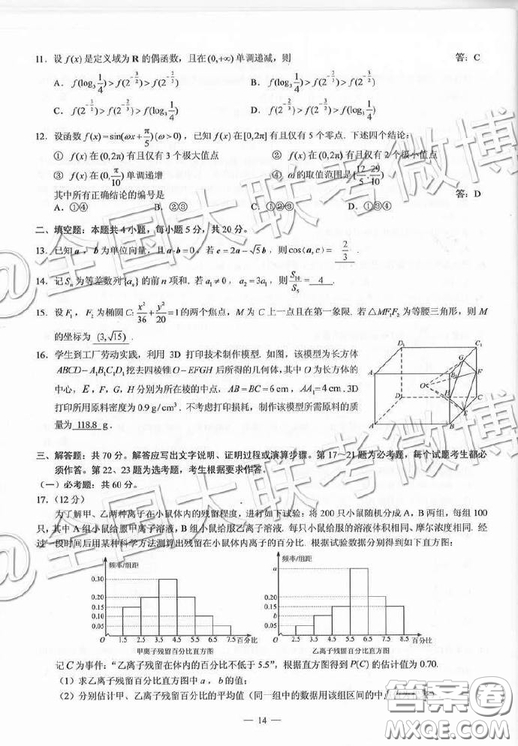 11. 设 f(x) 是定义域为 R 的偶函数，且在 (0,+∞) 单调递减，则 答：C
A. f(log₃ 1/4) > f(2^(-3/2)) > f(2^(-2/3)) B. f(log₃ 1/4) > f(2^(-2/3)) > f(2^(-3/2))
C. f(2^(-3/2)) > f(2^(-2/3)) > f(log₃ 1/4) D. f(2^(-2/3)) > f(2^(-3/2)) > f(log₃ 1/4)
12. 设函数 f(x)=sin(ωx+π/5)(ω>0)，已知 f(x) 在 [0,2π] 有且仅有 5 个零点. 下述四个结论：
① f(x) 在 (0,2π) 有且仅有 3 个极大值点 ② f(x) 在 (0,2π) 有且仅有 2 个极小值点
③ f(x) 在 (0,π/10) 单调递增 ④ ω 的取值范围是 [12/5,29/10)
其中所有正确结论的编号是 答：D
A. ①④ B. ②③ C. ①②③ D. ①③④
二、填空题：本题共 4 小题，每小题 5 分，共 20 分。
13. 已知 a，b 为单位向量，且 a·b=0，若 c=2a−√5b，则 cos⟨a,c⟩= 2/3 .
14. 记 Sₙ 为等差数列 {aₙ} 的前 n 项和. 若 a₁≠0，a₂=3a₁，则 S₁₀/S₅= 4 .
15. 设 F₁，F₂ 为椭圆 C: x²/36+y²/20=1 的两个焦点，M 为 C 上一点且在第一象限. 若 △MF₁F₂ 为等腰三角形，则 M
的坐标为 (3,√15) .
16. 学生到工厂劳动实践，利用 3D 打印技术制作模型. 如图，该模型为长方体
ABCD−A₁B₁C₁D₁ 挖去四棱锥 O−EFGH 后所得的几何体，其中 O 为长方体的
中心，E，F，G，H 分别为所在棱的中点，AB=BC=6 cm，AA₁=4 cm. 3D
打印所用原料密度为 0.9 g/cm³. 不考虑打印损耗，制作该模型所需原料的质
量为 118.8 g .
三、解答题：共 70 分。解答应写出文字说明、证明过程或演算步骤。第 17～21 题为必考题，每个试题考生都必
须作答。第 22、23 题为选考题，考生根据要求作答。
（一）必考题：共 60 分。
17.（12 分）
为了解甲、乙两种离子在小鼠体内的残留程度，进行如下试验：将 200 只小鼠随机分成 A，B 两组，每组 100
只，其中 A 组小鼠给服甲离子溶液，B 组小鼠给服乙离子溶液. 每只小鼠给服的溶液体积相同、摩尔浓度相同. 经
过一段时间后用某种科学方法测算出残留在小鼠体内离子的百分比. 根据试验数据分别得到如下直方图：
频率/组距 频率/组距
0.30
0.20
0.15
0.10
0 1.5 2.5 3.5 4.5 5.5 6.5 7.5 百分比
甲离子残留百分比直方图
a
0.20
0.15
b
0.05
0 2.5 3.5 4.5 5.5 6.5 7.5 8.5 百分比
乙离子残留百分比直方图
记 C 为事件：“乙离子残留在体内的百分比不低于 5.5”，根据直方图得到 P(C) 的估计值为 0.70.
（1）求乙离子残留百分比直方图中 a，b 的值；
（2）分别估计甲、乙离子残留百分比的平均值（同一组中的数据用该组区间的中
— 14 —
@全国大联考微博
@全国大联考微博
答案圈
MXQE.COM